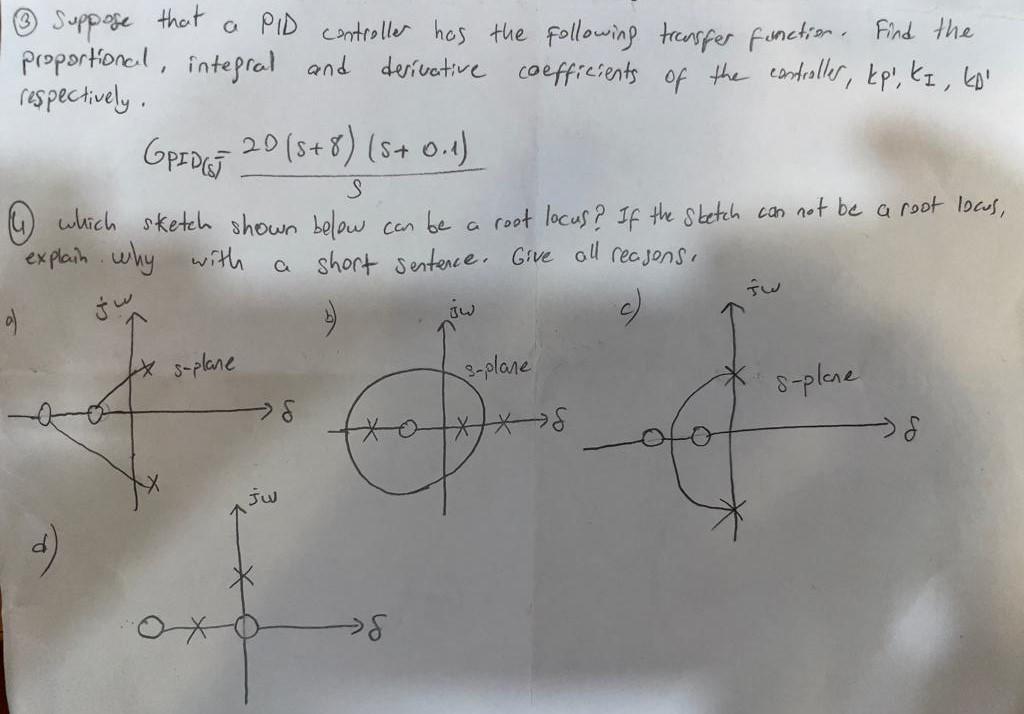 ③ Suppose that a PID controller has the following transfer function. Find the
proportional, integral and derivative coefficients of the controller, kp, kI, kD,
respectively.
GPID(s) = 20 (s+8) (s+0.1)
s
④ which sketch shown below can be a root locus? If the sketch can not be a root locus,
explain why with a short sentence. Give all reasons.
a) jω s-plane δ
b) jω s-plane δ
c) jω s-plane δ
d) jω δ